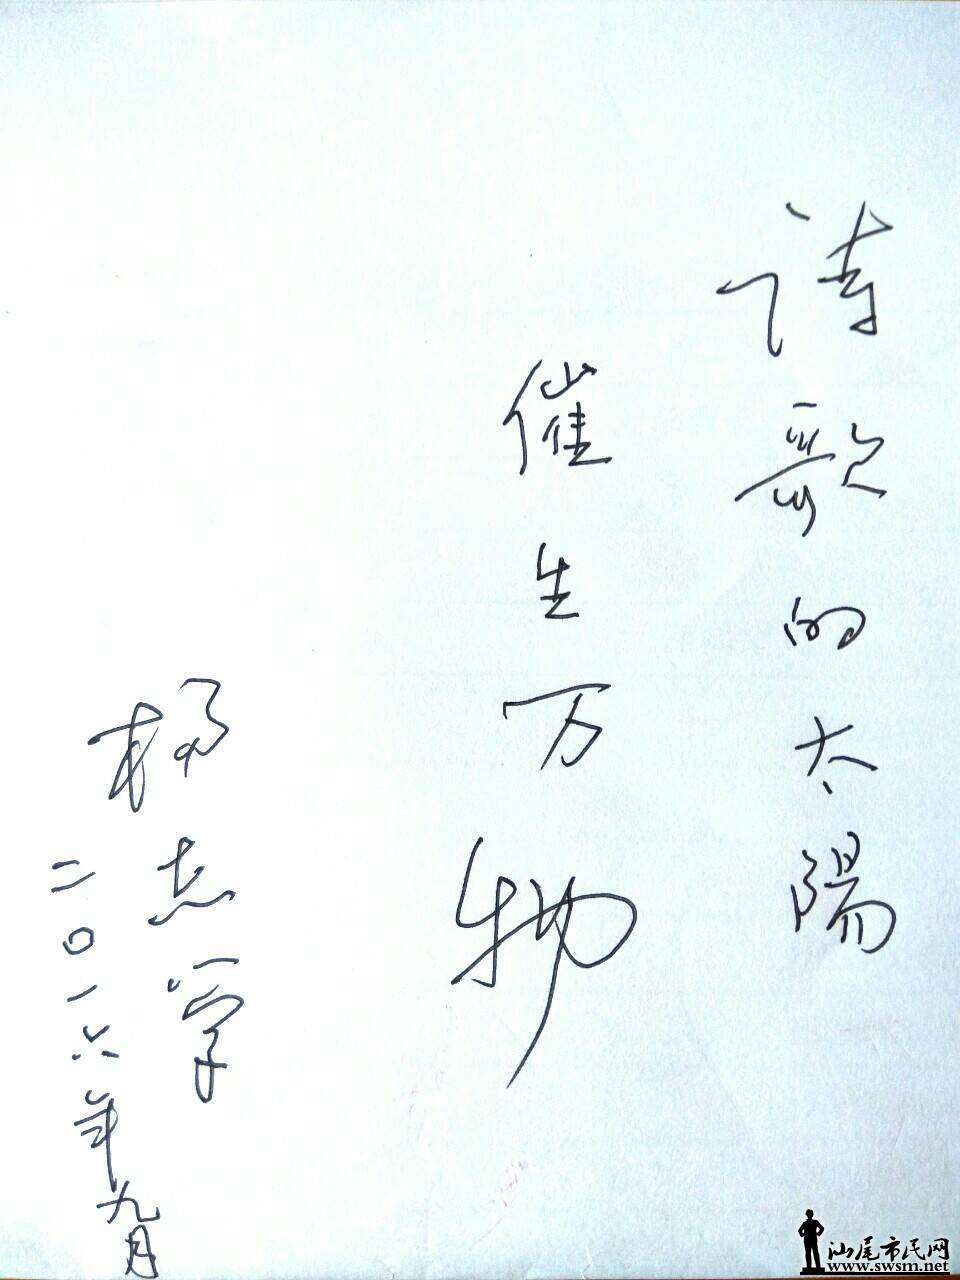 诗歌的太陽
催生万物
杨志学
二〇一六年九月
汕尾市民网
www.swsm.net